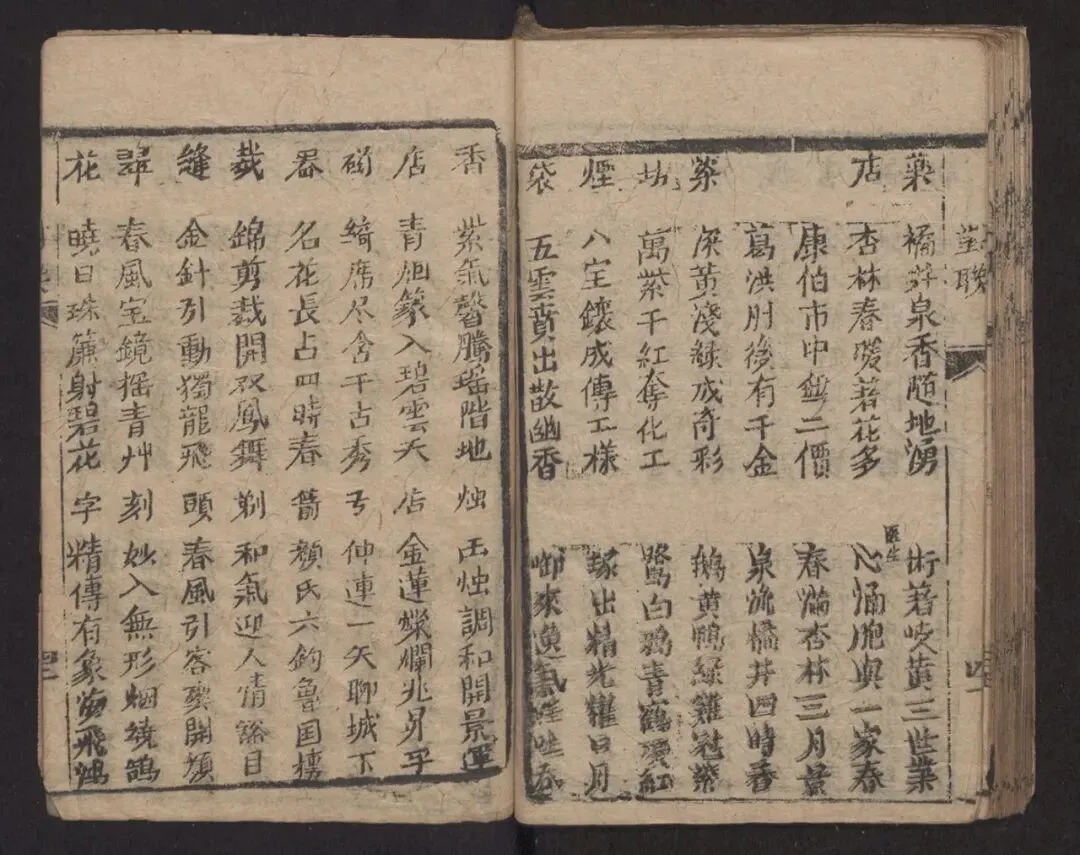 對聯
藥 橘井泉香随地湧 術著岐黃三世業
店 杏林春暖著花多 医生 心涌胞與一家春
康伯市中無二價 春滿杏林三月景
葛洪肘後有千金 泉流橘井四時香
染 深黃淺緑成奇彩 鵝黃鴨緑雞冠紫
坊 萬紫千紅奪化工 鷺白鴉青鶴頂紅
煙 八宝鑲成傳工樣 出精光耀日月
袋 五雲賁出散幽香 啣來
香 紫氣馨騰瑶階地 烛 玉烛調和開景運
店 青烟篆入碧雲天 店 金蓮燦爛兆昇平
磁 綺席尽含千古秀 弓 仲連一矢聊城下
器 名花長占四時春 箭 顏氏六鈞魯国樓
裁 錦剪裁開双鳳舞 剃 和氣迎人情豁目
縫 金針引動獨龍飛 頭 春風引客樂開顏
翠 春風宝鏡摇青艸 刻 妙入無形烟繞鵠
花 曉日珠簾射碧花 字 精傳有象海飛鴻